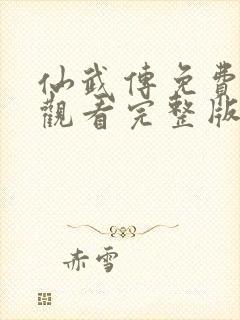 仙武傳免費
觀看完整版
赤雪